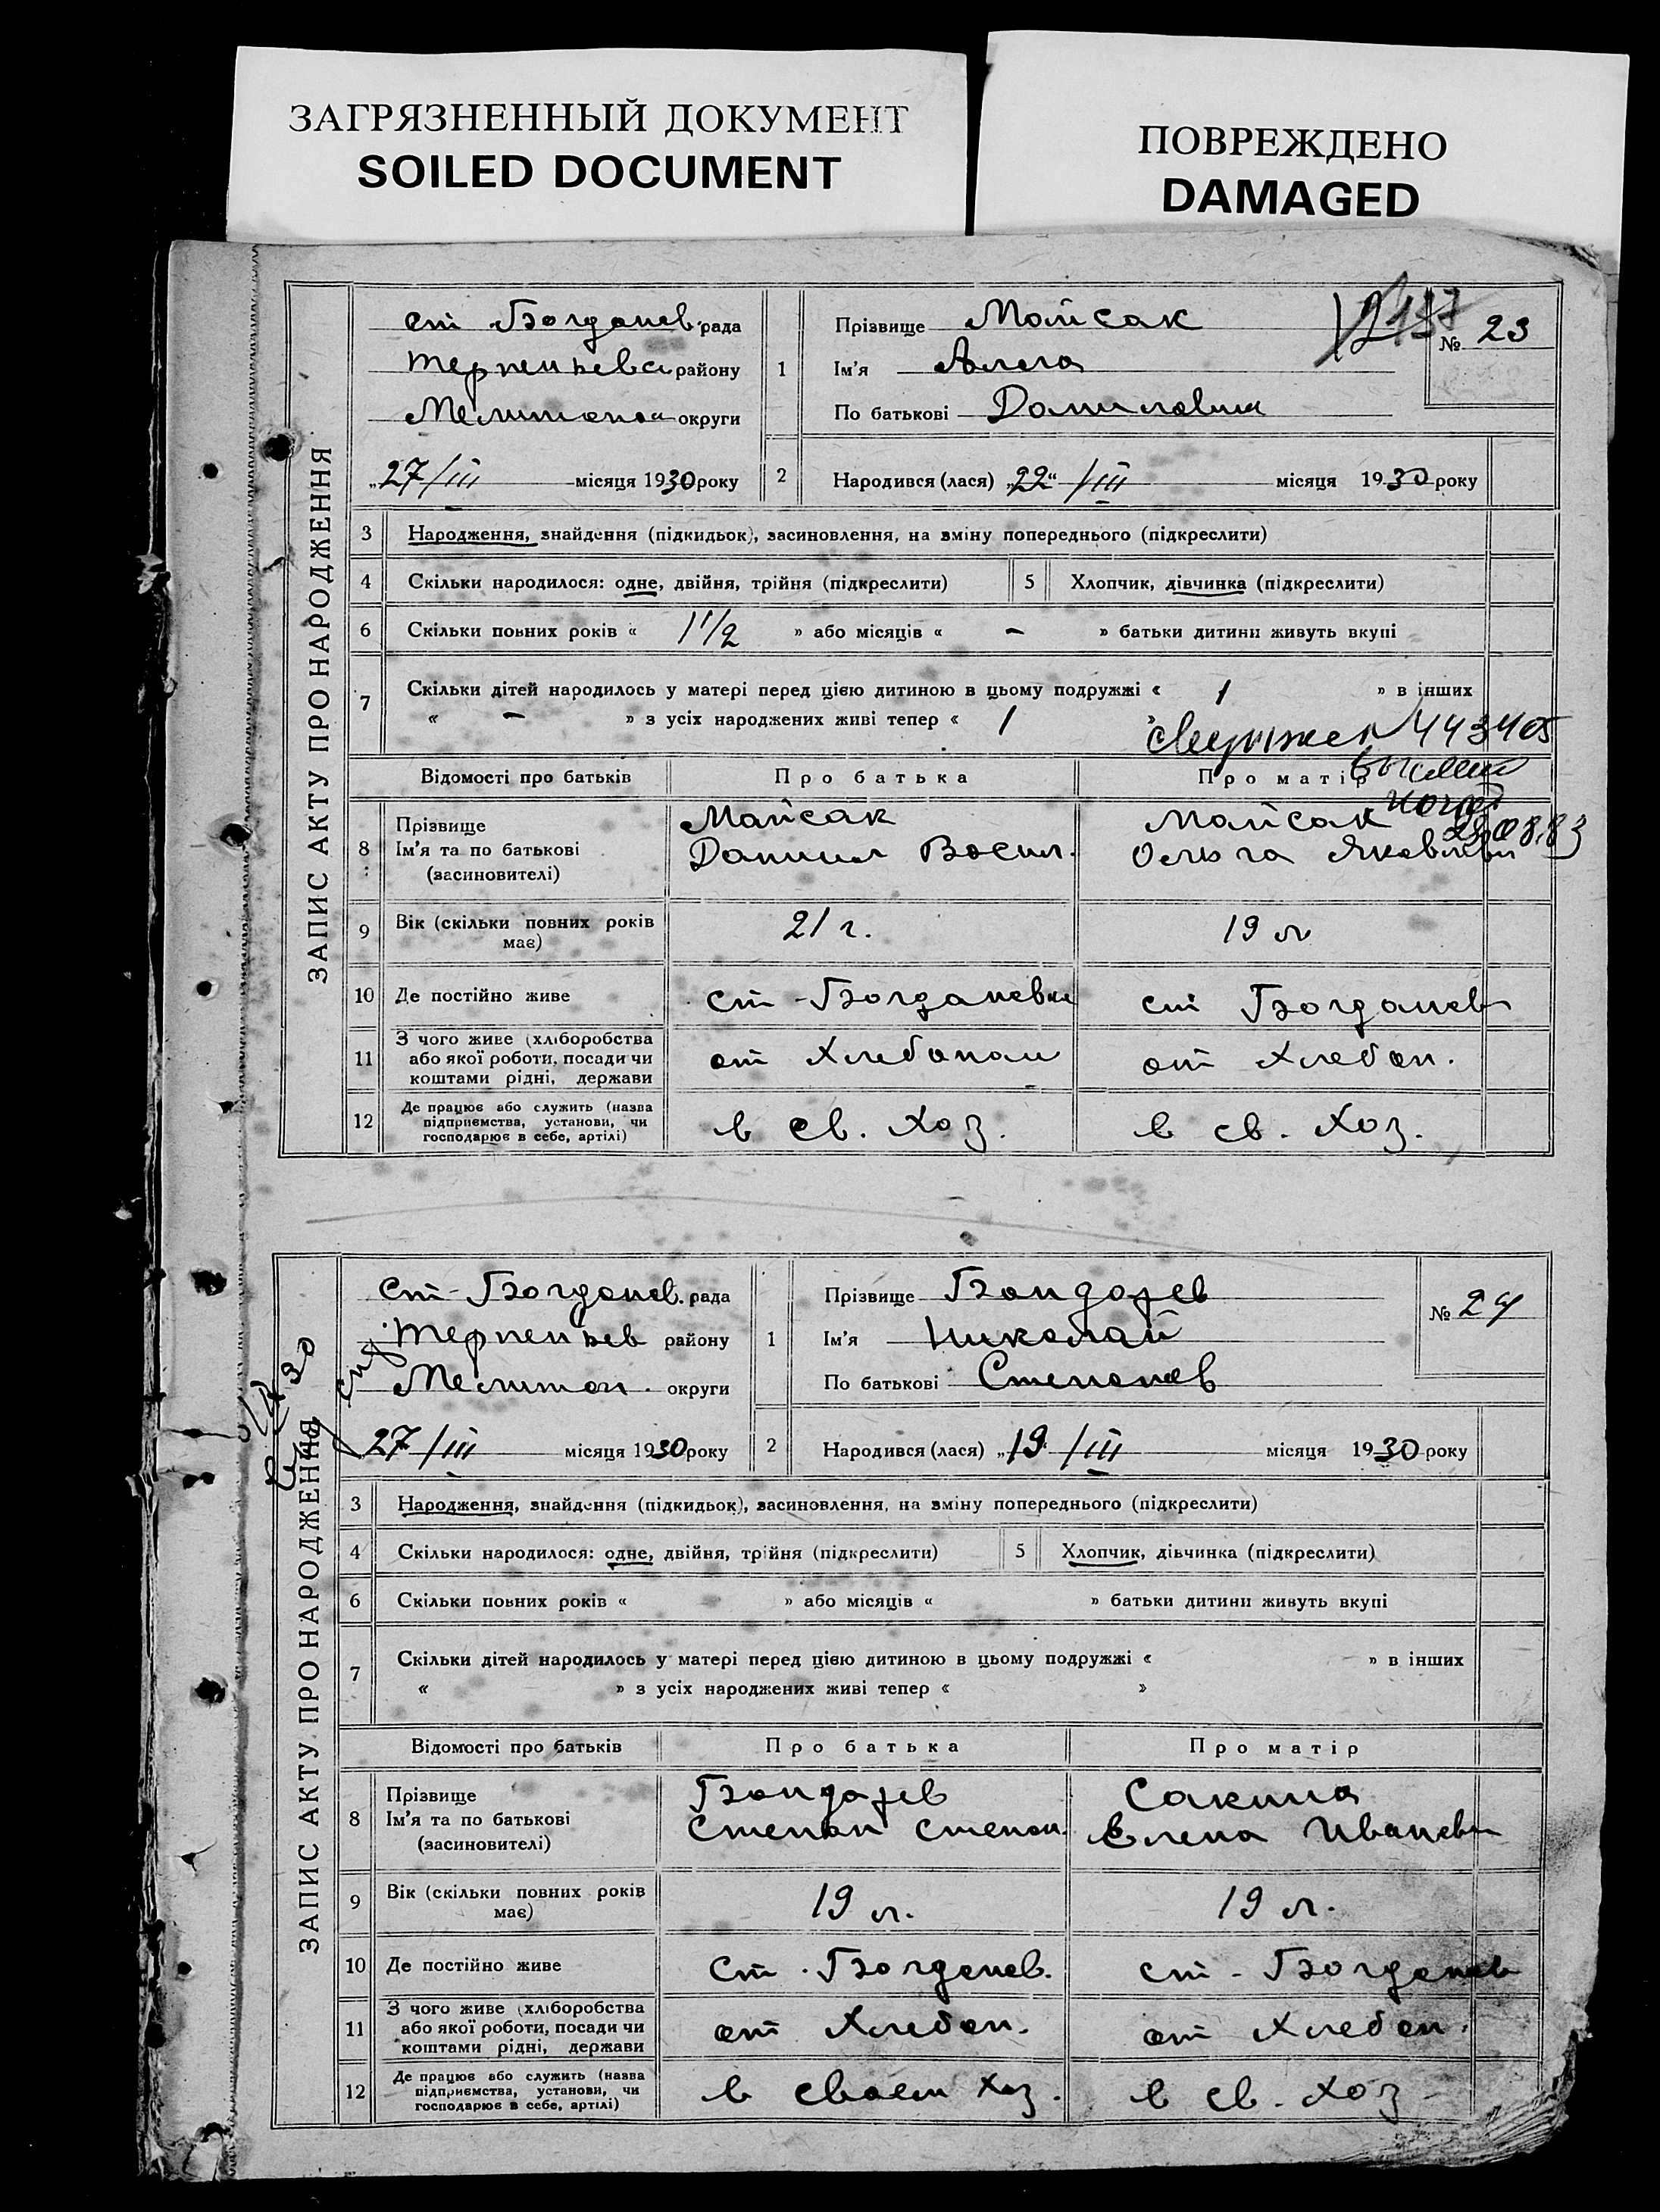 ЗАГРЯЗНЕННЫЙ ДОКУМЕНТ
SOILED DOCUMENT
ПОВРЕЖДЕНО
DAMAGED
ЗАПИС АКТУ ПРО НАРОДЖЕННЯ
ст Богданов рада
Терпеньевск району
Мелитопол округи
„27/III місяця 1930 року
1
Прізвище Майсак
Ім'я
По батькові Даниловна
№ 23
2
Народився (лася) „22“ /III місяця 1930 року
3 Народження, знайдення (підкидьок), засиновлення, на зміну попереднього (підкреслити)
4 Скільки народилося: одне, двійня, трійня (підкреслити)
5 Хлопчик, дівчинка (підкреслити)
6 Скільки повних років « 1 1/2 » або місяців « – » батьки дитини живуть вкупі
7 Скільки дітей народилось у матері перед цією дитиною в цьому подружжі « 1 » в інших
« – » з усіх народжених живі тепер « 1 »
443405
Відомості про батьків Про батька Про матір
28.08.83
8 Прізвище
Ім'я та по батькові
(засиновителі)
Майсак
Даниил Васил.
Майсак
Ольга Яковлевн
9 Вік (скільки повних років має) 21 г. 19 л
10 Де постійно живе ст-Богдановке ст Богданов
11 З чого живе (хліборобства
або якої роботи, посади чи
коштами рідні, держави
от хлебопаш от хлебоп.
12 Де працює або служить (назва
підприємства, установи, чи
господарює в себе, артілі)
в св. хоз. в св. хоз.
ЗАПИС АКТУ ПРО НАРОДЖЕННЯ
ст-Богданов. рада
Терпеньев району
Мелитоп. округи
27/III місяця 1930 року
1
Прізвище Бондарев
Ім'я Николай
По батькові Степанов
№ 24
2
Народився (лася) „19“ /III місяця 1930 року
3 Народження, знайдення (підкидьок), засиновлення, на зміну попереднього (підкреслити)
4 Скільки народилося: одне, двійня, трійня (підкреслити)
5 Хлопчик, дівчинка (підкреслити)
6 Скільки повних років « » або місяців « » батьки дитини живуть вкупі
7 Скільки дітей народилось у матері перед цією дитиною в цьому подружжі « » в інших
« » з усіх народжених живі тепер « »
Відомості про батьків Про батька Про матір
8 Прізвище
Ім'я та по батькові
(засиновителі)
Бондарев
Степан Степан.
Сакина
Елена Ивановн
9 Вік (скільки повних років має) 19 л. 19 л.
10 Де постійно живе ст. Богданов. ст-Богданов
11 З чого живе (хліборобства
або якої роботи, посади чи
коштами рідні, держави
от хлебоп. от хлебоп.
12 Де працює або служить (назва
підприємства, установи, чи
господарює в себе, артілі)
в своем хоз. в св. хоз